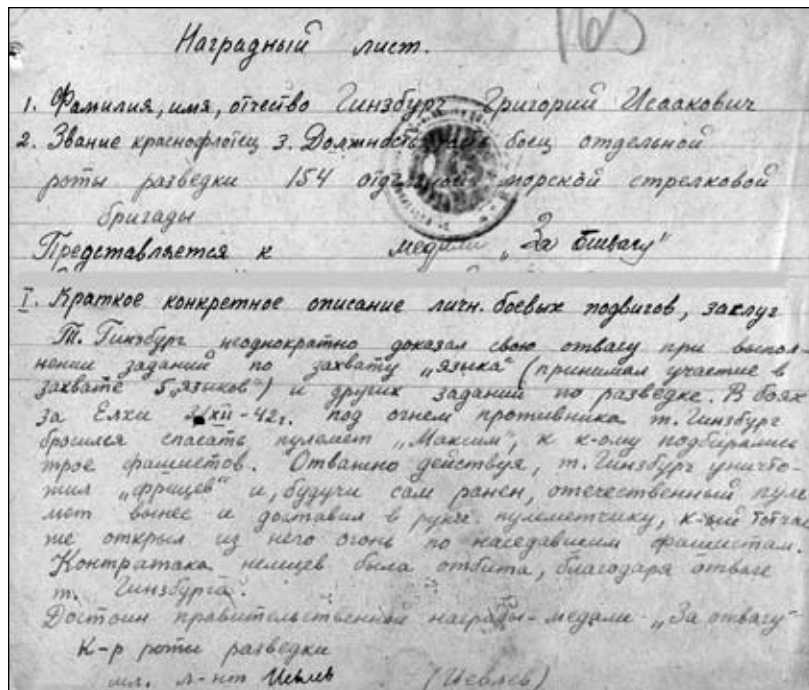 163
Наградный лист.
1. Фамилия, имя, отчество Гинзбург Григорий Исаакович
2. Звание краснофлотец 3. Должность, боец отдельной
роты разведки 154 отдельной морской стрелковой
бригады
Представляется к медали „За отвагу"
I. Краткое конкретное описание личн. боевых подвигов, заслуг
Т. Гинзбург неоднократно доказал свою отвагу при выпол-
нении заданий по захвату „языка" (принимал участие в
захвате 5 „языков") и других заданий по разведке. В боях
за Елхи XII-42г. под огнем противника т. Гинзбург
бросился спасать пулемет „Максим", к к-ому подбирались
трое фашистов. Отважно действуя, т. Гинзбург уничто-
жил „фрицев" и, будучи сам ранен, отечественный пуле
мет вынес и доставил в руки пулеметчику, к-ый тотчас
же открыл из него огонь по наседавшим фашистам.
Контратака немцев была отбита, благодаря отваге
т. Гинзбурга.
Достоин правительственной награды - медали - „За отвагу"
К-р роты разведки
мл. л-нт (Иевлев)